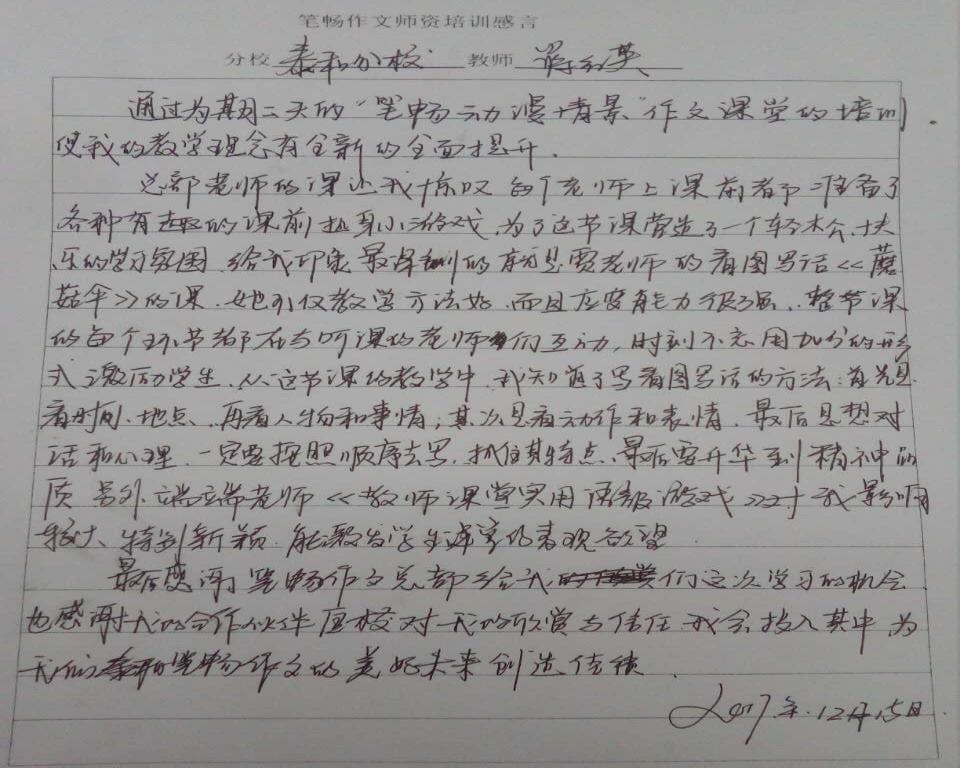 笔畅作文师资培训感言
分校 泰和分校 教师
通过为期二天的“笔畅动漫情景”作文课堂的培训
使我的教学理念有全新的全面提升.
总部老师的课让我惊叹 每个老师上课前都准备了
各种有趣的课前热身小游戏,为了这节课营造了一个轻松、快
乐的学习氛围.给我印象最深刻的就是贾老师的看图写话《蘑
菇伞》的课.她不仅教学方法好.而且应变能力很强.整节课
的每个环节都在与听课的老师们互动,时刻不忘用加分的形
式激励学生.从这节课的教学中.我知道了写看图写话的方法:首先是
看时间、地点.再看人物和事情;其次是看动作和表情.最后是想对
话和心理.一定要按照顺序去写.抓住其特点.最后要升华到精神的
质 另外 端端老师《教师课堂实用 游戏》对我影响
较大、特别新颖.能激发学生 的表现欲望
最后感谢笔畅作文总部给我们这次学习的机会
也感谢我的合作伙伴 校对我的欣赏与信任 我会投入其中 为
我们 笔畅作文的美好未来创造佳绩.
2017.年.12月15日.